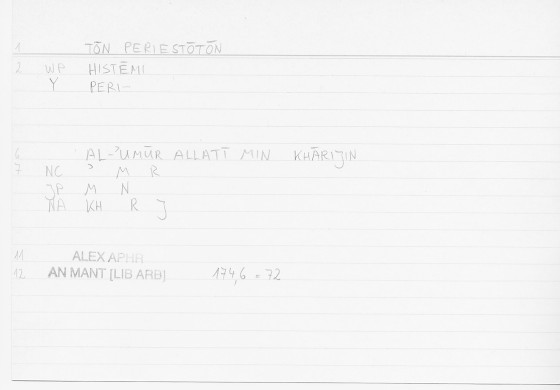 1 TŌN PERIESTŌTŌN
2 WP HISTĒMI
Y PERI-
6 AL-ʾUMŪR ALLATĪ MIN KHĀRIJIN
7 NC ʾ M R
JP M N
NA KH R J
11 ALEX APHR
12 AN MANT [LIB ARB] 174,6 = 72